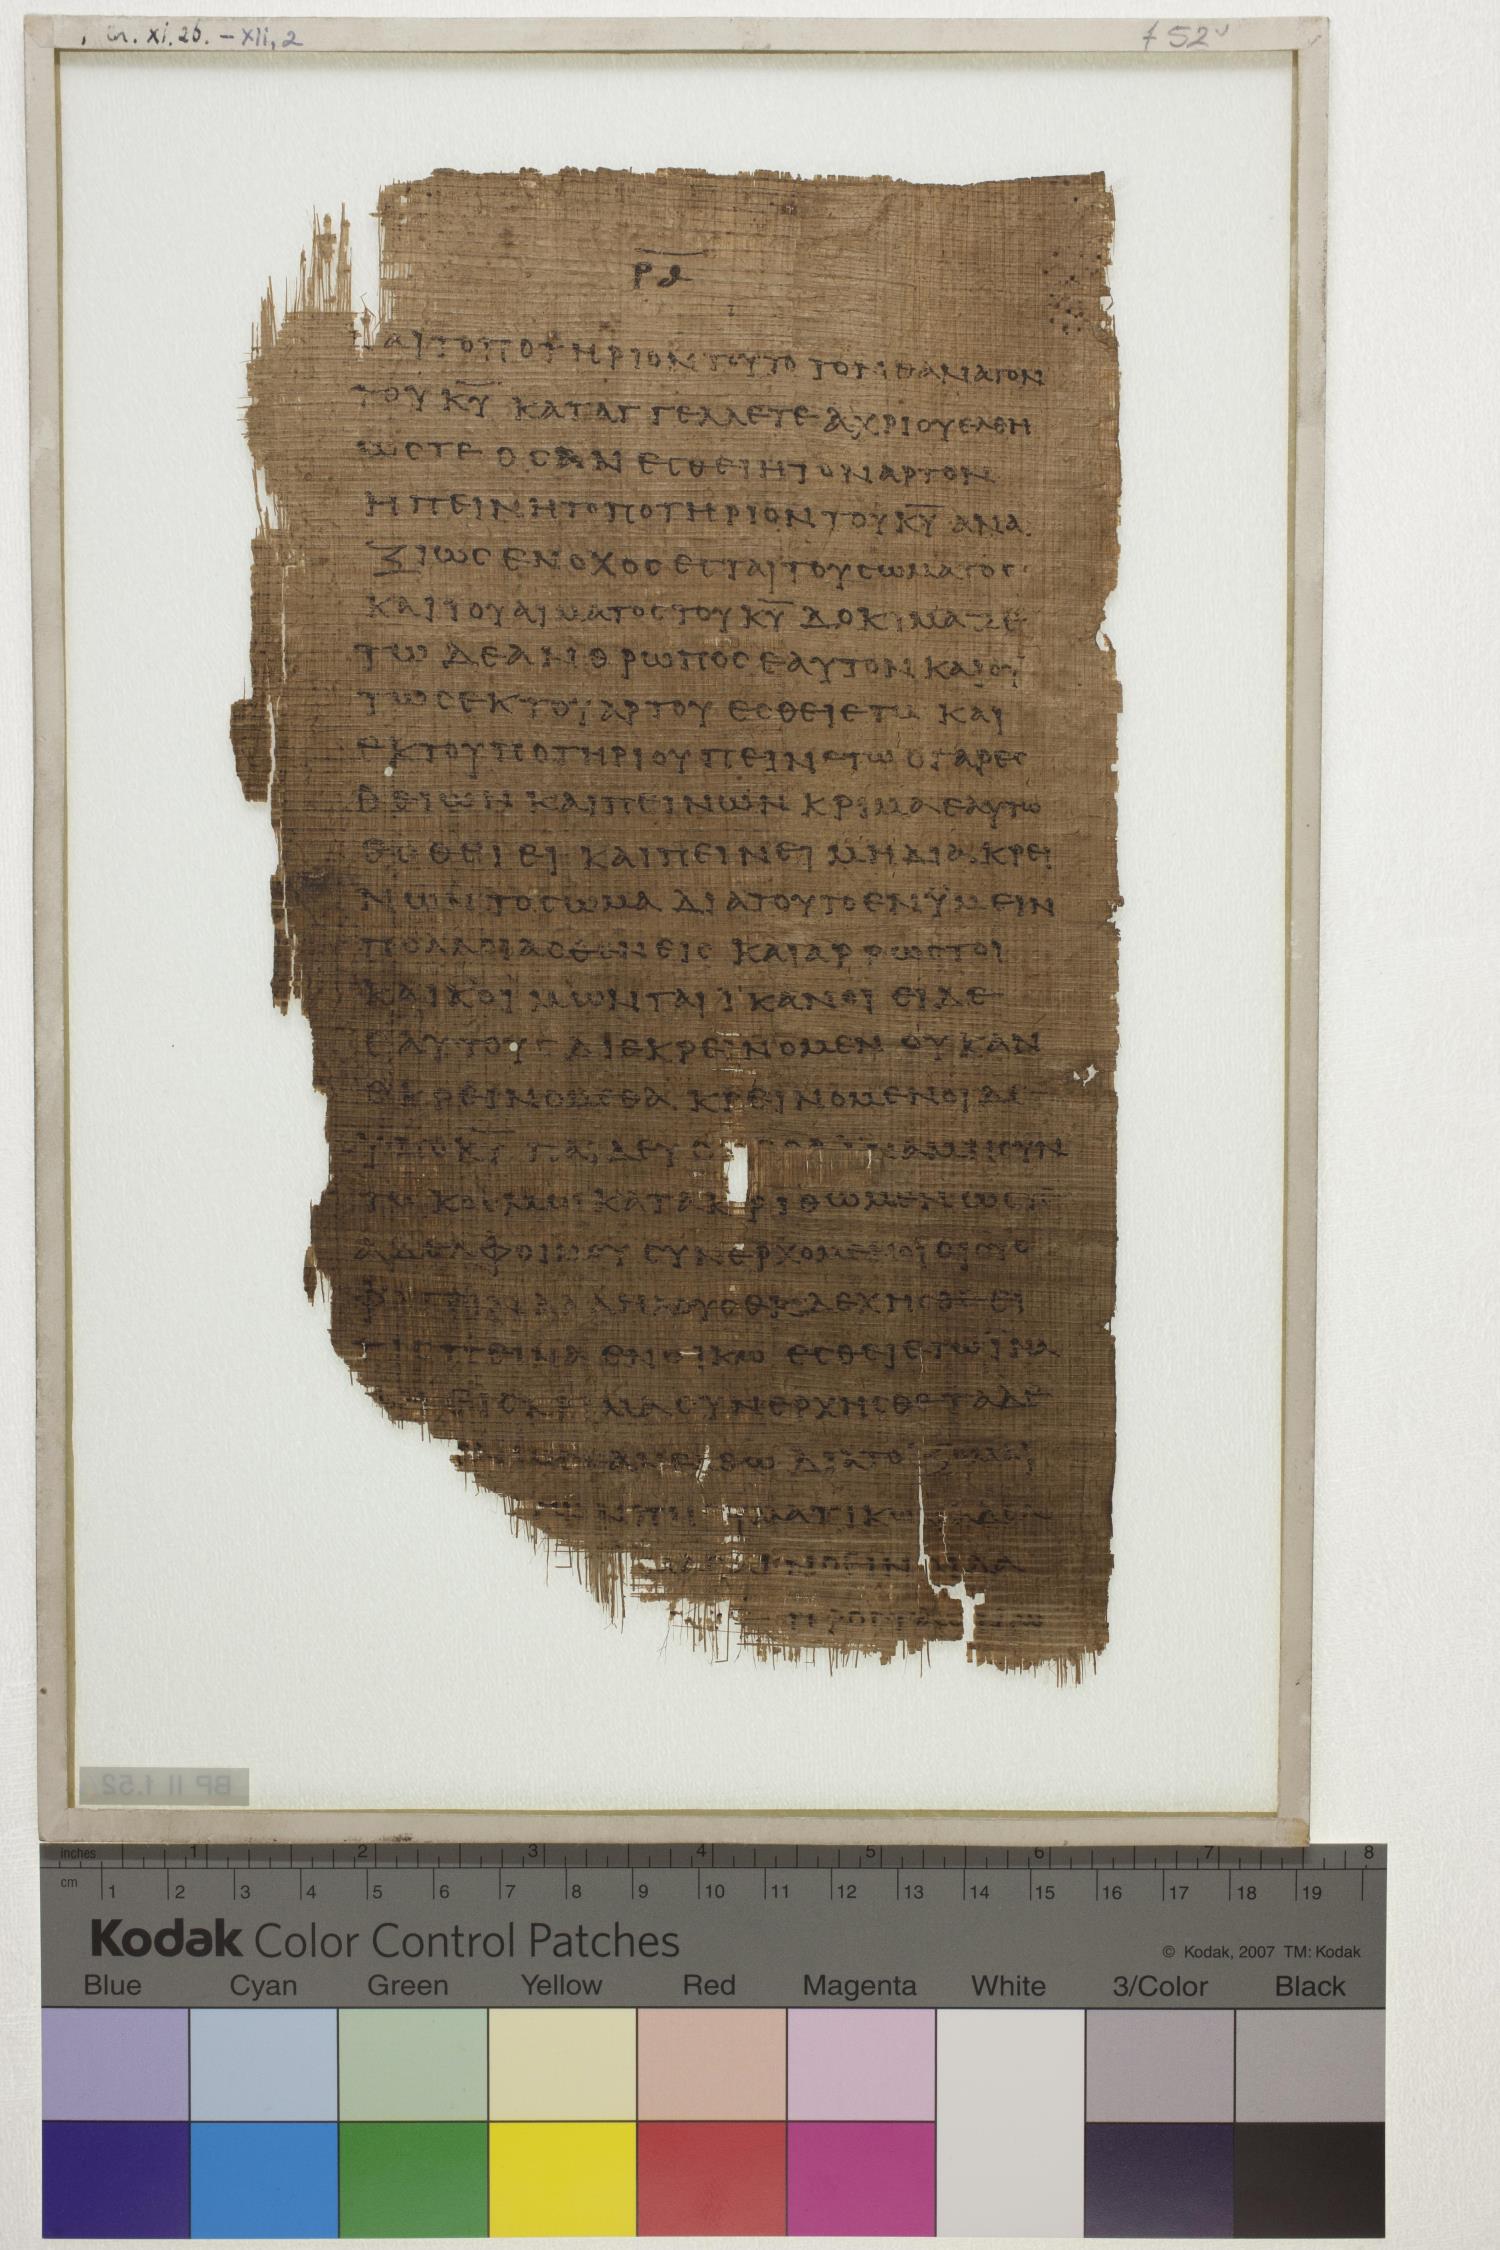 xi.26. – xii, 2
f 52ᵛ
ΡΔ
ΚΑΙ ΤΟ ΠΟΤΗΡΙΟΝ ΤΟΥΤΟ ΤΟΝ ΘΑΝΑΤΟΝ
ΤΟΥ Κ̅Υ̅ ΚΑΤΑΓΓΕΛΛΕΤΕ ΑΧΡΙ ΟΥ ΕΛΘΗ
ΩΣΤΕ ΟΣ ΑΝ ΕΣΘΕΙΗ ΤΟΝ ΑΡΤΟΝ
Η ΠΕΙΝΗ ΤΟ ΠΟΤΗΡΙΟΝ ΤΟΥ Κ̅Υ̅ ΑΝΑ
ΞΙΩΣ ΕΝΟΧΟΣ ΕΣΤΑΙ ΤΟΥ ΣΩΜΑΤΟΣ
ΚΑΙ ΤΟΥ ΑΙΜΑΤΟΣ ΤΟΥ Κ̅Υ̅ ΔΟΚΙΜΑΖΕ
ΤΩ ΔΕ ΑΝΘΡΩΠΟΣ ΕΑΥΤΟΝ ΚΑΙ ΟΥ
ΤΩΣ ΕΚ ΤΟΥ ΑΡΤΟΥ ΕΣΘΕΙΕΤΩ ΚΑΙ
ΕΚ ΤΟΥ ΠΟΤΗΡΙΟΥ ΠΕΙΝΕΤΩ Ο ΓΑΡ ΕΣ
ΘΕΙΩΝ ΚΑΙ ΠΕΙΝΩΝ ΚΡΙΜΑ ΕΑΥΤΩ
ΕΣΘΕΙΕΙ ΚΑΙ ΠΕΙΝΕΙ ΜΗ ΔΙΑΚΡΕΙ
ΝΩΝ ΤΟ ΣΩΜΑ ΔΙΑ ΤΟΥΤΟ ΕΝ ΫΜΕΙΝ
ΠΟΛΛΟΙ ΑΣΘΕΝΕΙΣ ΚΑΙ ΑΡΡΩΣΤΟΙ
ΚΑΙ ΚΟΙΜΩΝΤΑΙ ΙΚΑΝΟΙ ΕΙ ΔΕ
ΕΑΥΤΟΥΣ ΔΙΕΚΡΕΙΝΟΜΕΝ ΟΥΚ ΑΝ
ΕΚΡΕΙΝΟΜΕΘΑ ΚΡΕΙΝΟΜΕΝΟΙ ΔΕ
ΫΠΟ Κ̅Υ̅ ΠΑΙΔΕΥΟ ΙΝΑ ΜΗ ΣΥΝ
ΤΩ ΚΟΣΜΩ ΚΑΤΑΚΡΙΘΩΜΕΝ ΩΣΤΕ
ΑΔΕΛΦΟΙ ΜΟΥ ΣΥΝΕΡΧΟΜΕΝΟΙ ΕΙΣ ΤΟ
ΦΑΓΕΙΝ ΑΛΛΗΛΟΥΣ ΕΚΔΕΧΗΣΘΕ ΕΙ
ΤΙΣ ΠΕΙΝΑ ΕΝ ΟΙΚΩ ΕΣΘΕΙΕΤΩ ΙΝΑ
ΜΗ ΕΙΣ ΚΡΙΜΑ ΣΥΝΕΡΧΗΣΘΕ ΤΑ ΔΕ
ΑΝ ΕΛΘΩ ΔΙΑΤΑΞΟΜΑΙ
ΤΩΝ ΠΝ ΜΑΤΙΚΩΝ
ΑΓΝΟΕΙΝ
BP II 1.52
inches 1 2 3 4 5 6 7 8
cm 1 2 3 4 5 6 7 8 9 10 11 12 13 14 15 16 17 18 19
Kodak Color Control Patches © Kodak, 2007 TM: Kodak
Blue Cyan Green Yellow Red Magenta White 3/Color Black